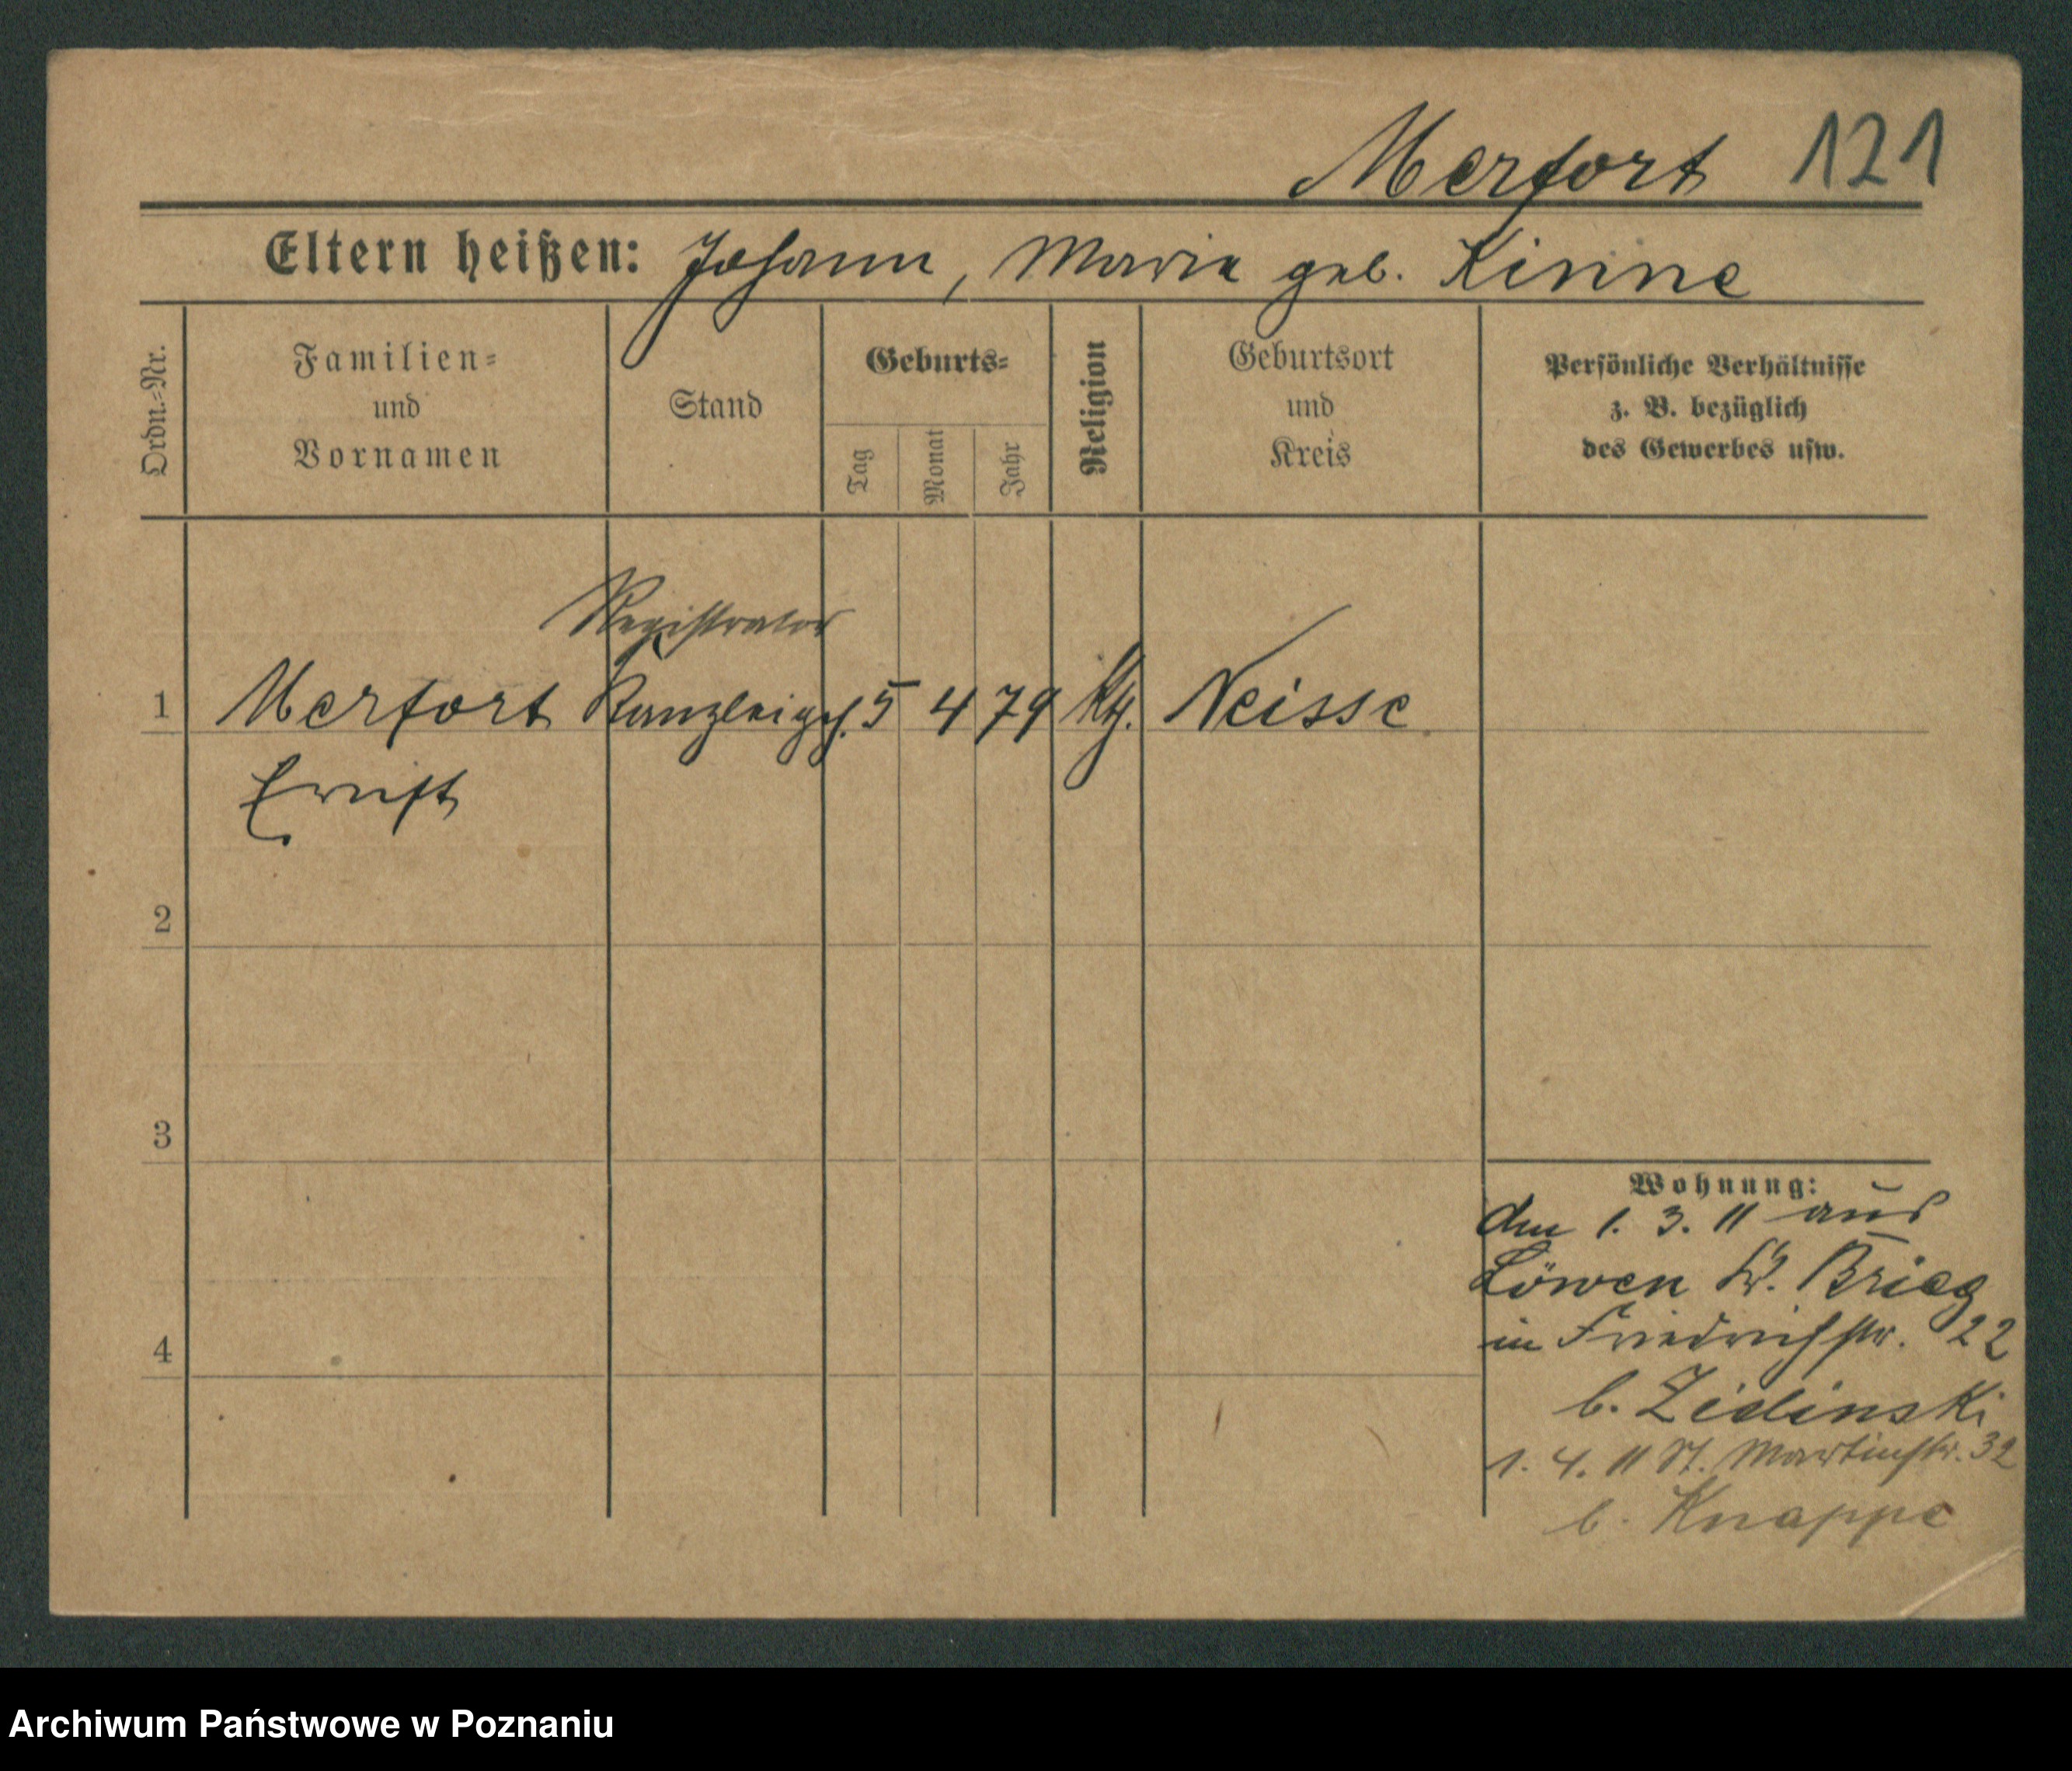 Merfort 121
Eltern heißen: Johann, Maria geb. Kinne
Ordn.-Nr.
Familien-
und
Vornamen
Stand
Geburts-
Tag
Monat
Jahr
Religion
Geburtsort
und
Kreis
Persönliche Verhältnisse
z. B. bezüglich
des Gewerbes usw.
Registrator
1 Merfort Kanzleigeh. 5 4 79 Kth. Neisse
Ernst
2
3
4
Wohnung:
den 1. 3. 11 aus
Löwen Kr. Brieg
in Friedrichstr. 22
b. Zidinski
1. 4. 11 St. Martinstr. 32
b. Knappe
Archiwum Państwowe w Poznaniu